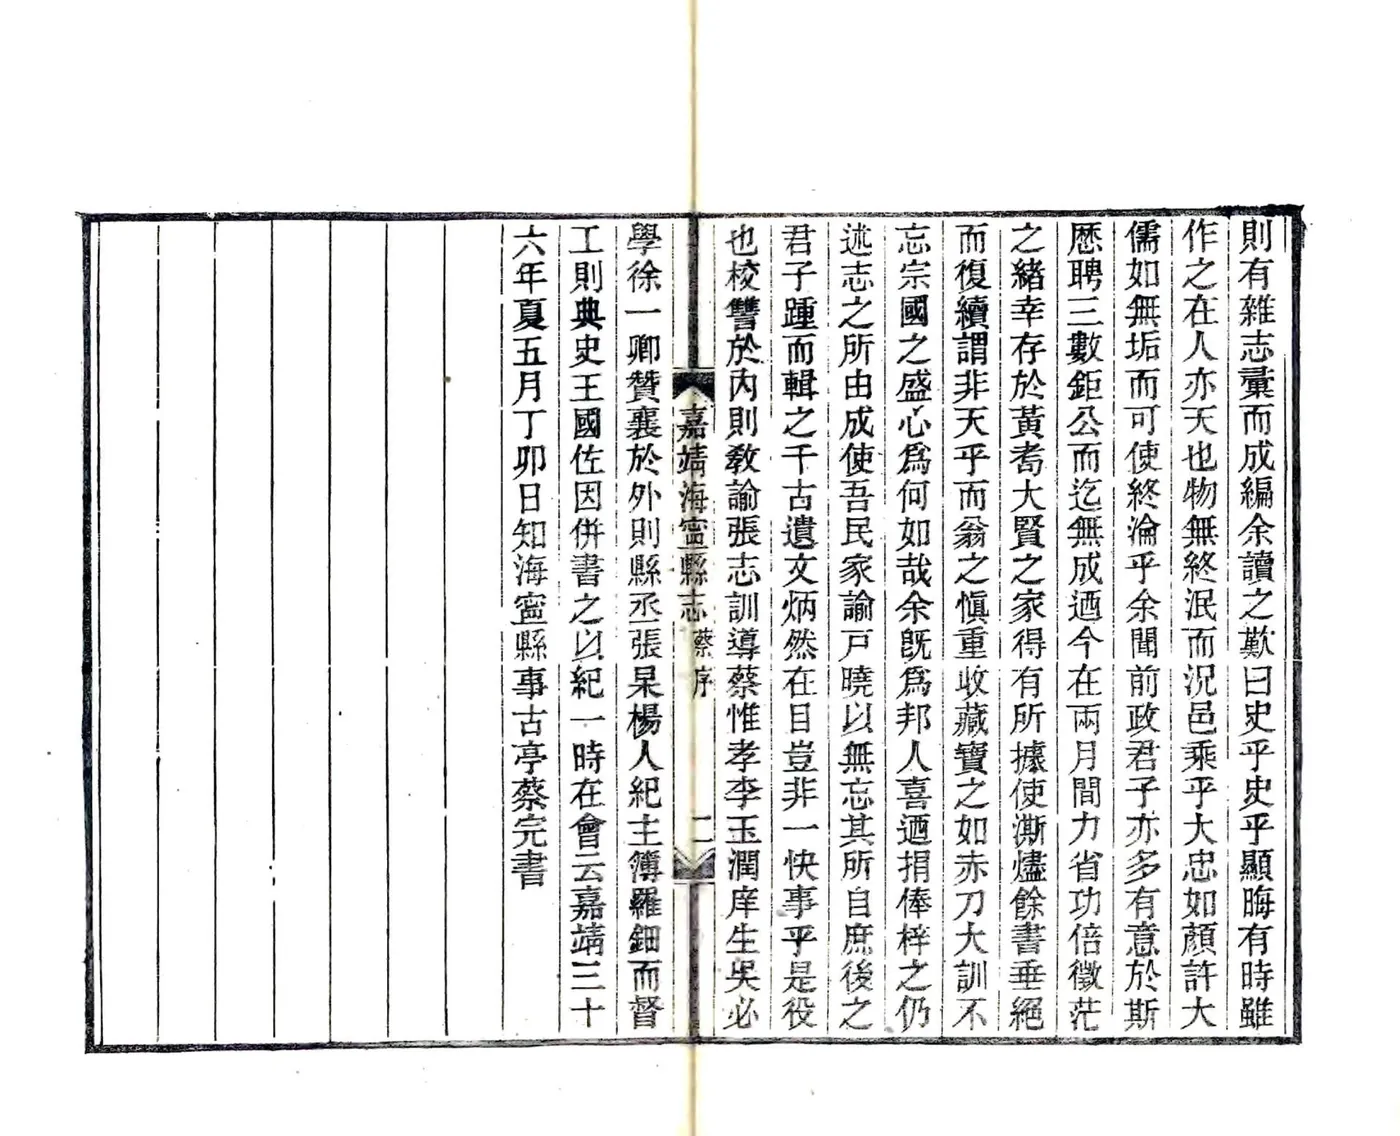 則有雜志彚而成編余讀之歎曰史乎史乎顯晦有時雖
作之在人亦天也物無終泯而況邑乘乎大忠如顏許大
儒如無垢而可使終淪乎余聞前政君子亦多有意於斯
歷聘三數鉅公而迄無成迺今在兩月間力省功倍徵茫
之緒幸存於黃耉大賢之家得有所據使澌燼餘書垂絕
而復續謂非天乎而翁之愼重收藏寶之如赤刀大訓不
忘宗國之盛心爲何如哉余旣爲邦人喜迺捐俸梓之仍
述志之所由成使吾民家諭戸曉以無忘其所自庶後之
君子踵而輯之千古遺文炳然在目豈非一快事乎是役
也校讐於內則敎諭張志訓導蔡惟孝李玉潤庠生吳必
嘉靖海寍縣志 蔡序 二
學徐一卿贊襄於外則縣丞張杲楊人紀主簿羅鈿而督
工則典史王國佐因併書之以紀一時在會云嘉靖三十
六年夏五月丁卯日知海寍縣事古亭蔡完書